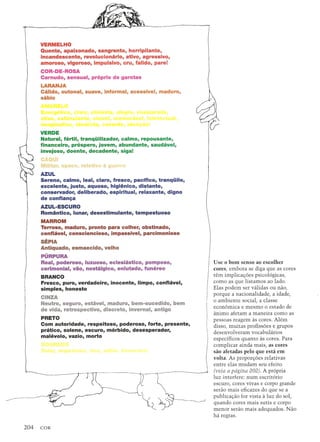 VERMELHO
Quente, apaixonado, sangrento, horripilante,
incandescente, revolucionário, ativo, agressivo,
amoroso, vigoroso, impulsivo, cru, falido, pare!
COR-DE-ROSA
Carnudo, sensual, próprio de garotas
LARANJA
Cálido, outonal, suave, informal, acessível, maduro,
sábio
AMARELO
VERDE
Natural, fértil, tranqüilizador, calmo, repousante,
financeiro, próspero, jovem, abundante, saudável,
invejoso, doente, decadente, siga!
CÁQUI
Militar, opaco, relativo à guerra
AZUL
Sereno, calmo, leal, claro, fresco, pacífico, tranqüilo,
excelente, justo, aquoso, higiênico, distante,
conservador, deliberado, espiritual, relaxante, digno
de confiança
AZUL-ESCURO
Romântico, lunar, desestimulante, tempestuoso
MARROM
Terroso, maduro, pronto para colher, obstinado,
confiável, consciencioso, impassível, parcimonioso
SÉPIA
Antiquado, esmaecido, velho
PÚRPURA
Real, poderoso, luxuoso, eclesiástico, pomposo,
cerimonial, vão, nostálgico, enlutado, funéreo
BRANCO
Fresco, puro, verdadeiro, inocente, limpo, confiável,
simples, honesto
CINZA
Neutro, seguro, estável, maduro, bem-sucedido, bem
de vida, retrospectivo, discreto, invernal, antigo
PRETO
Com autoridade, respeitoso, poderoso, forte, presente,
prático, solene, escuro, mórbido, desesperador,
malévolo, vazio, morto
Use o bom senso ao escolher
cores, embora se diga que as cores
têm implicações psicológicas,
como as que listamos ao lado.
Elas podem ser válidas ou não,
porque a nacionalidade, a idade,
o ambiente social, a classe
econômica e mesmo o estado de
ânimo afetam a maneira como as
pessoas reagem às cores. Além
disso, muitas profissões e grupos
desenvolveram vocabulários
específicos quanto às cores. Para
complicar ainda mais, as cores
são afetadas pelo que está em
volta. As proporções relativas
entre elas mudam seu efeito
(veja a página 202). A própria
luz interfere: num escritório
escuro, cores vivas e corpo grande
serão mais eficazes do que se a
publicação for vista à luz do sol,
quando cores mais sutis e corpo
menor serão mais adequados. Não
há regras.
204 COR